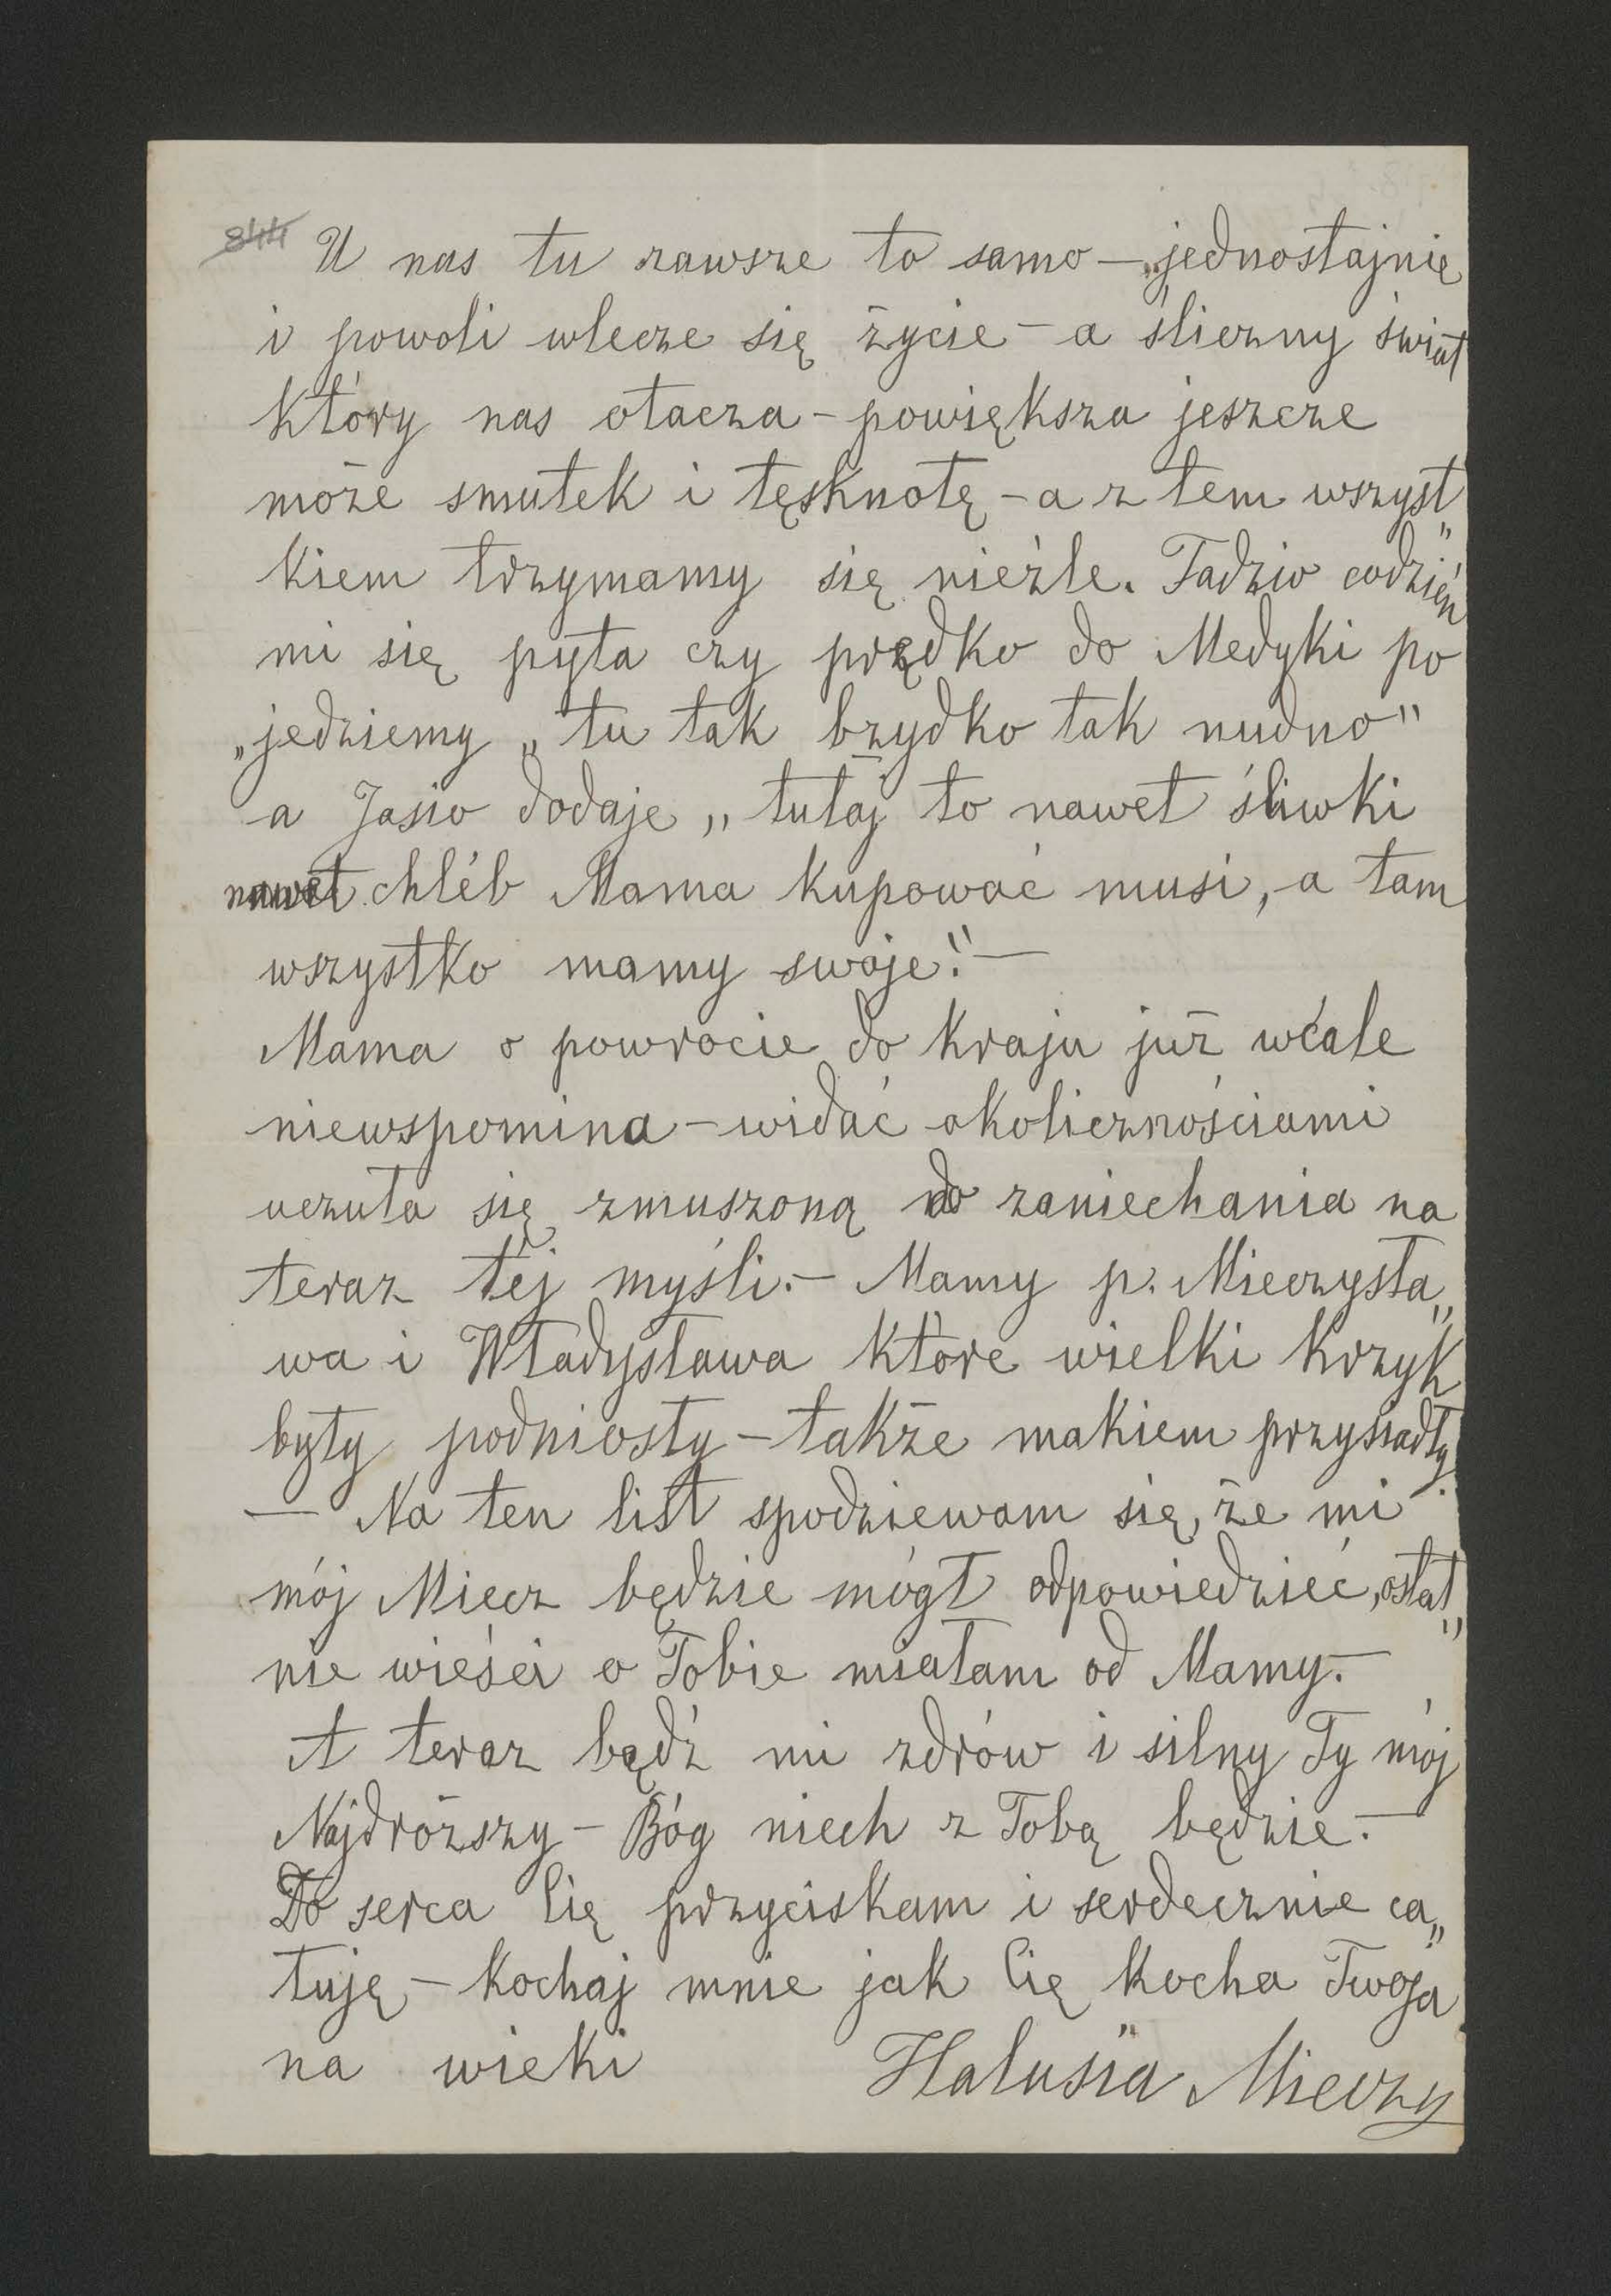 844 U nas tu zawsze to samo — jednostajnie
i powoli wlecze się życie — a śliczny świat
który nas otacza — powiększa jeszcze
może smutek i tęsknotę — a z tem wszyst"
kiem trzymamy się nieźle. Tadzio codzień
mi się pyta czy prędko do Medyki po
„jedziemy „tu tak bzydko tak nudno"
a Jasio dodaje „tutaj to nawet śliwki
nawet chléb Mama kupować musi, a tam
wszystko mamy swoje". —
Mama o powrocie do kraju już wcale
niewspomina — widać okolicznościami
uczuła się zmuszoną do zaniechania na
teraz téj myśli. — Mamy p. Mieczysła„
wa i Władysława które wielki krzyk
były podniosły — także makiem przysiadły.
— Na ten list spodziewam się, że mi
mój Miecz będzie mógł odpowiedzieć, ostat„
nie wieści o Tobie miałam od Mamy. —
A teraz bądź mi zdrów i silny Ty mój
Najdroższy — Bóg niech z Tobą będzie. —
Do serca Cię przyciskam i serdecznie ca„
łuję — kochaj mnie jak Cię kocha Twoja
na wieki Halusia Mieczy